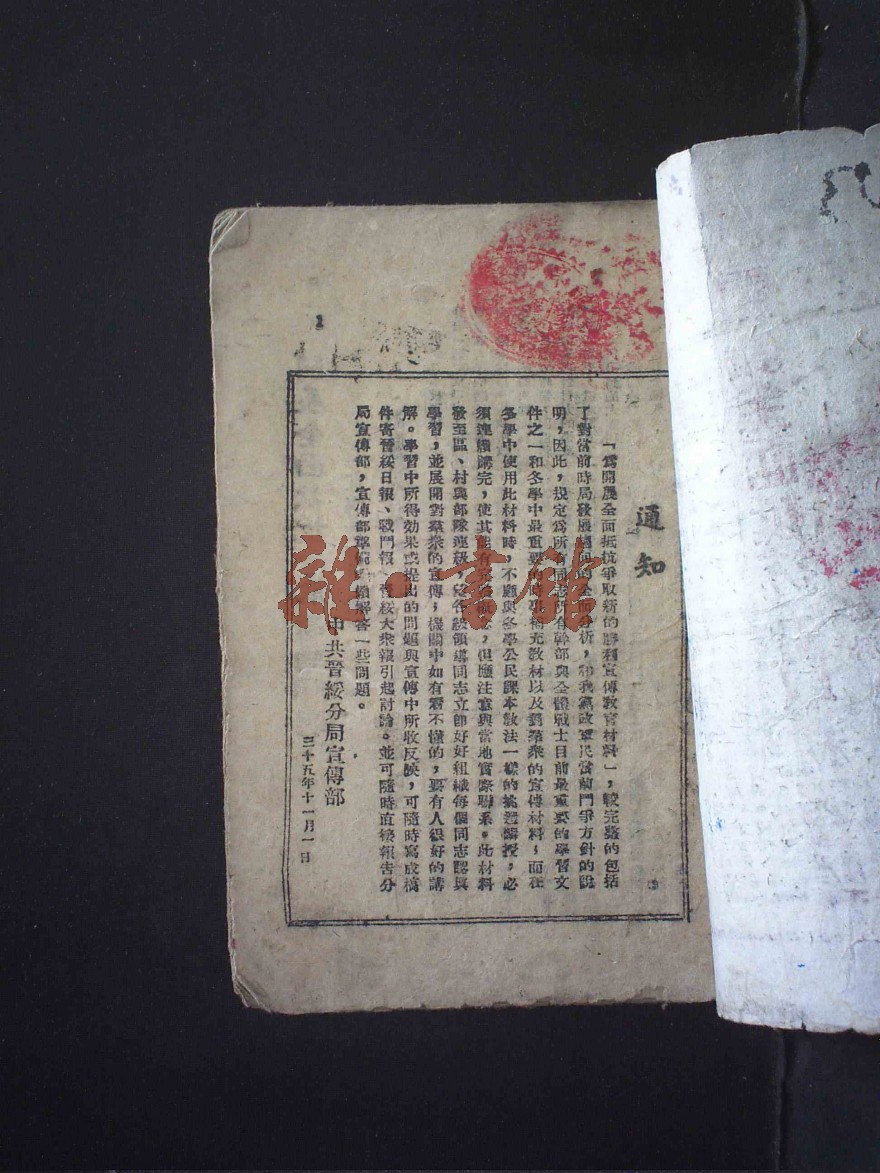 通知
「為開展全面抵抗爭取新的勝利宣傳教育材料」,較完整的包括
了對當前時局發展趨向的全面分析,和我黨政軍民當前鬥爭方針的說
明,因此,規定為所有同志所有幹部與全體戰士目前最重要的學習文
件之一和冬學中最重要的時事補充教材以及對羣衆的宣傳材料;而在
冬學中使用此材料時,不應與冬學公民課本教法一樣的挑選講授,必
須連續講完,使其能有完整概念,但應注意與當地實際聯系。此材料
發至區、村與部隊連級,望各級領導同志立即好好組織每個同志認真
學習,並展開對羣衆的宣傳;機關中如有看不懂的,要有人很好的講
解。學習中所得效果或提出的問題與宣傳中所收反映,可隨時寫成稿
件寄晉綏日報、戰鬥報、晉綏大衆報引起討論。並可隨時直接報告分
局宣傳部,宣傳部準備 解答一些問題。
中共晉綏分局宣傳部
三十五年十一月一日
雜·書館